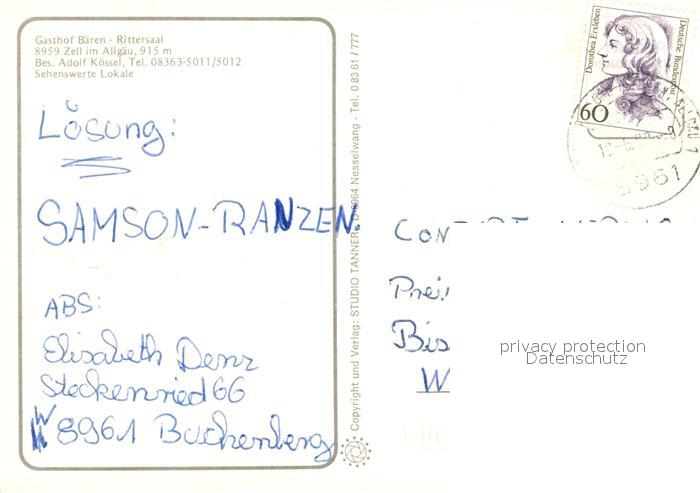 Gasthof Bären - Rittersaal
8959 Zell im Allgäu, 915 m
Bes. Adolf Kössel, Tel. 08363-5011/5012
Sehenswerte Lokale
Lösung:
SAMSON-RANZEN.
ABS:
Elisabeth Denz
Steckenried 66
W 8961 Buchenberg
Copyright und Verlag: STUDIO TANNER, D-8964 Nesselwang · Tel. 0 83 61 / 777
Dorothea Erxleben
Deutsche Bundespost
60
8961
Prei
Bis
W
privacy protection
Datenschutz